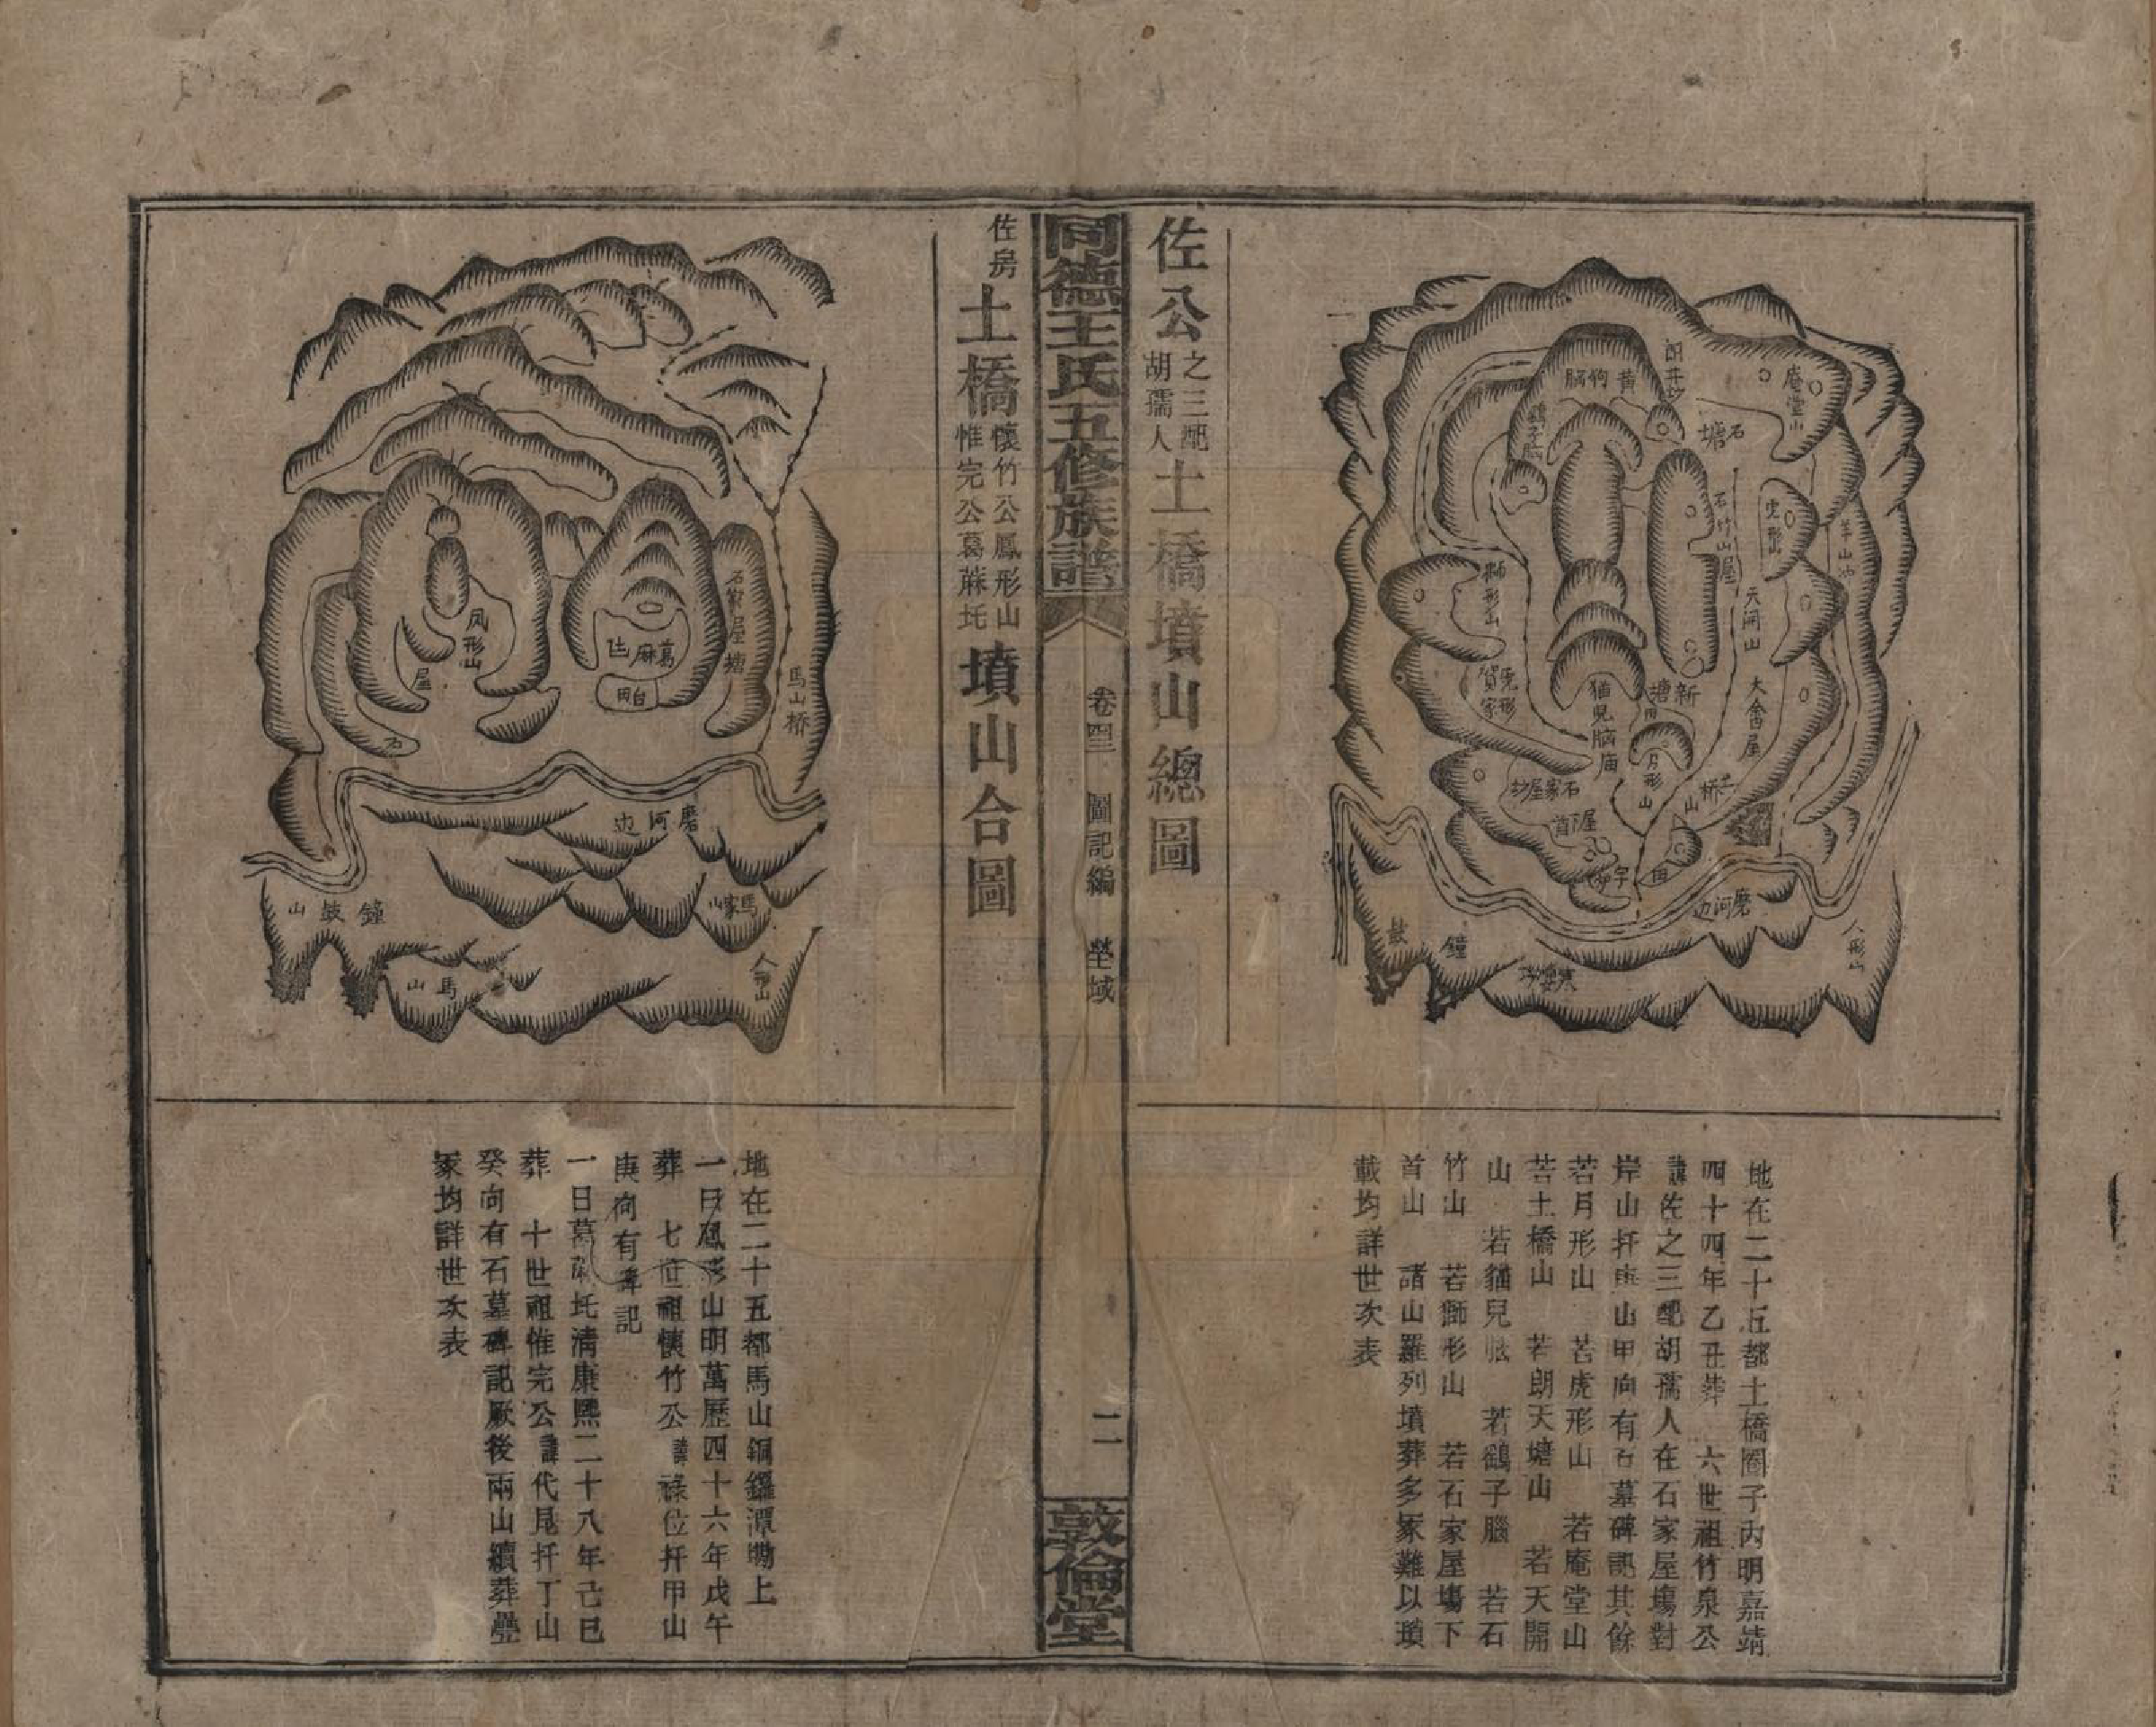 佐公之三配胡孺人土橋墳山總圖
庵堂山
朗天塘
黃狗腦
石塘
鷂子腦
羊山冲
虎形山
石竹山屋
獅形山
天開山
兎形
賀家
新塘
田
大會屋
猫兒脑庙
月形山
石家屋塲
土桥山
屋首
田
磨河边
人形山
鐘
鼓
地在二十五都土橋圈子內明嘉靖
四十四年乙丑葬 六世祖竹泉公
諱佐之三配胡孺人在石家屋塲對
岸山扦庚山甲向有石墓碑記其餘
若月形山 若虎形山 若庵堂山
若土橋山 若朗天塘山 若天開
山 若貓兒𦙶 若鷂子腦 若石
竹山 若獅形山 若石家屋塲下
首山 諸山羅列墳葬多冢難以瑣
載均詳世次表
同德王氏五修族譜
卷四三
圖記編
塋域
二
敦倫堂
佐房土橋懷竹公鳳形山惟完公葛蔴圫墳山合圖
石家屋塘
馬山桥
葛麻圫
田
凤形山
屋
石
磨河边
馬家山
鐘鼓山
人形山
馬山
地在二十五都馬山銅鑼潭塅上
一曰鳳形山明萬歷四十六年戊午
葬 七世祖懷竹公諱祿位扦甲山
庚向有碑記
一曰葛蔴圫清康熙二十八年己巳
葬 十世祖惟完公諱代尾扦丁山
癸向有石墓碑記厥後兩山續葬疊
冢均詳世次表